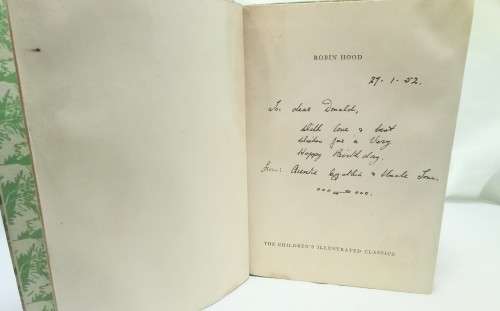 ROBIN HOOD
27-1-52.
To dear Donald,
With love & best
wishes for a Very
Happy Birthday.
from: Auntie & Uncle Tom.
THE CHILDREN'S ILLUSTRATED CLASSICS